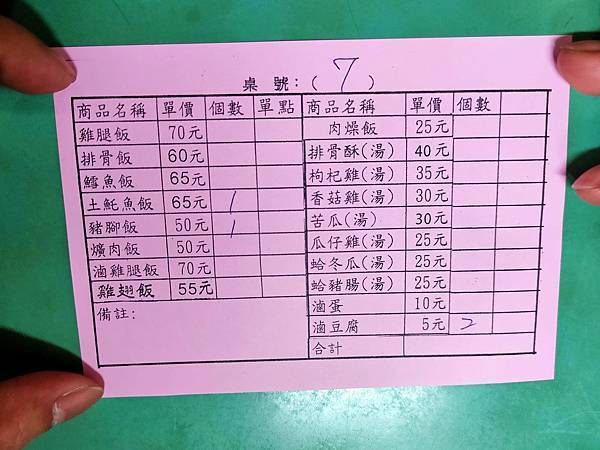 桌號:( 7 )
商品名稱 單價 個數 單點 商品名稱 單價 個數
雞腿飯 70元 肉燥飯 25元
排骨飯 60元 排骨酥(湯) 40元
鱈魚飯 65元 枸杞雞(湯) 35元
土魠魚飯 65元 1 香菇雞(湯) 30元
豬腳飯 50元 1 苦瓜(湯) 30元
爌肉飯 50元 瓜仔雞(湯) 25元
滷雞腿飯 70元 蛤冬瓜(湯) 25元
雞翅飯 55元 蛤豬腸(湯) 25元
備註: 滷蛋 10元
滷豆腐 5元 2
合計